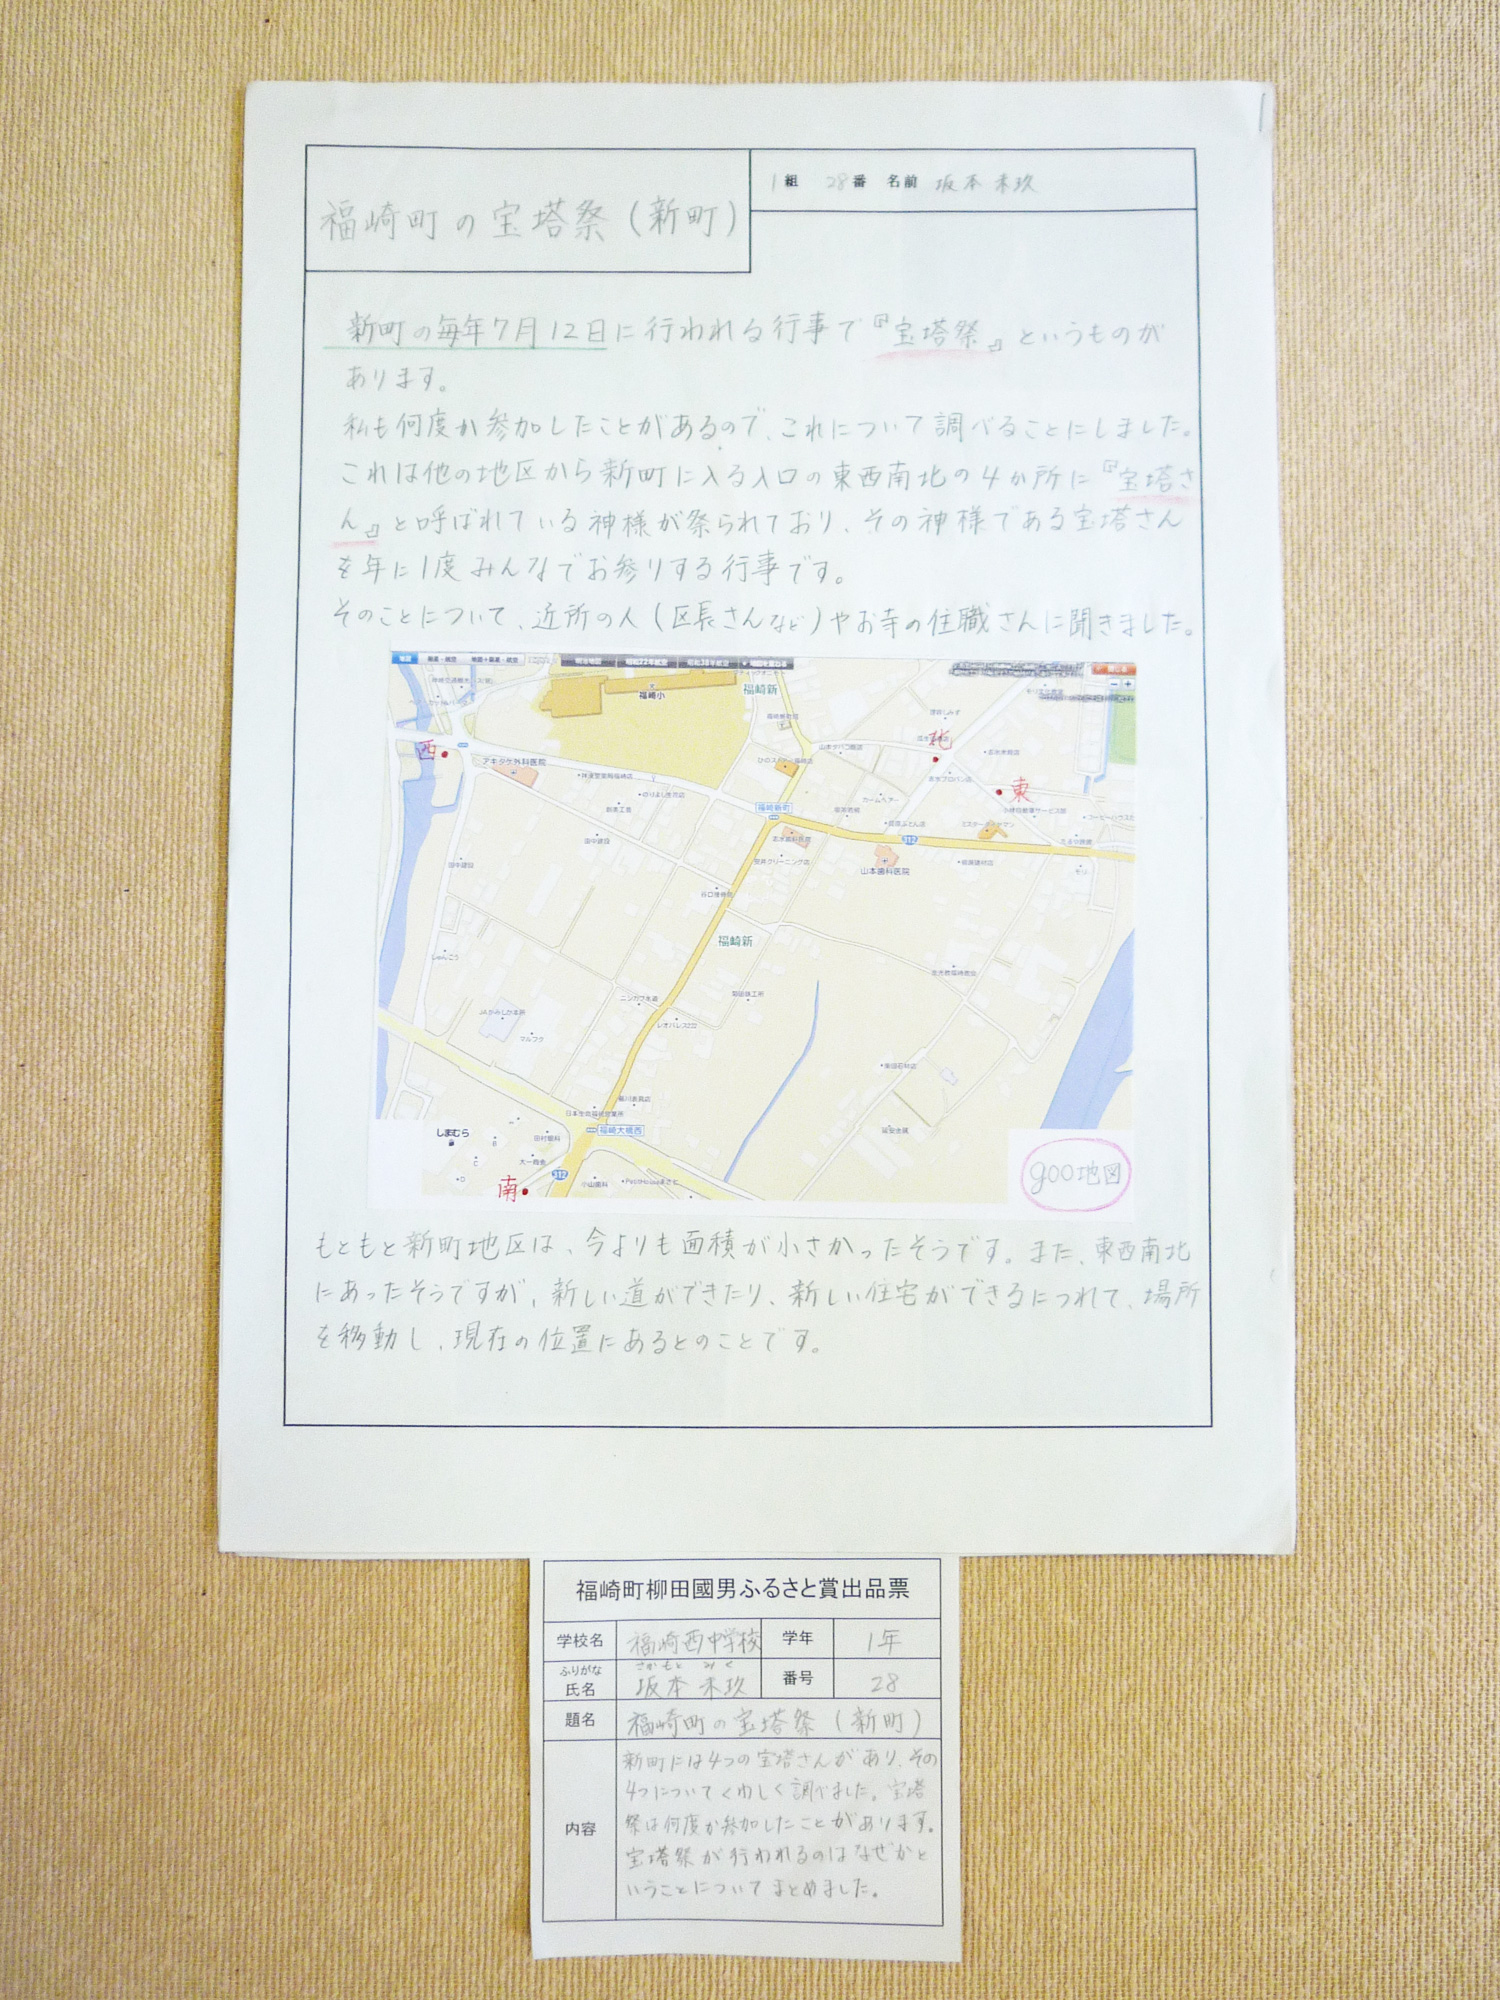 1
福崎町の宝塔祭(新町)
1組 28番 名前 坂本 未玖
新町の毎年7月12日に行われる行事で『宝塔祭』というものが
あります。
私も何度か参加したことがあるので、これについて調べることにしました。
これは他の地区から新町に入る入口の東西南北の4か所に『宝塔さ
ん』と呼ばれている神様が祭られており、その神様である宝塔さん
を年に1度みんなでお参りする行事です。
そのことについて、近所の人(区長さんなど)やお寺の住職さんに聞きました。
地図
福崎小
福崎新
西
北
東
アキタケ外科医院
山本タバコ商店
福崎新町
312
山本歯科医院
田中建設
田中建設
福崎新
しゅんこう
JAかみしか本所
マルフク
レオパレス222
しまむら
田村眼科
大一商会
福崎大橋西
312
小山歯科
南
goo地図
もともと新町地区は、今よりも面積が小さかったそうです。また、東西南北
にあったそうですが、新しい道ができたり、新しい住宅ができるにつれて、場所
を移動し、現在の位置にあるとのことです。
福崎町柳田國男ふるさと賞出品票
学校名 福崎西中学校 学年 1年
ふりがな さかもと みく
氏名 坂本 未玖 番号 28
題名 福崎町の宝塔祭(新町)
内容
新町には4つの宝塔さんがあり、その
4つについてくわしく調べました。宝塔
祭は何度か参加したことがあります。
宝塔祭が行われるのはなぜかと
いうことについてまとめました。